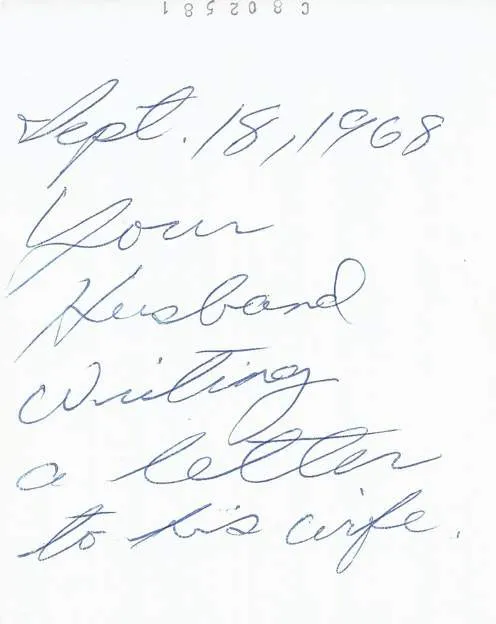 C802581
Sept. 18, 1968
Your
Husband
Writing
a letter
to his wife.